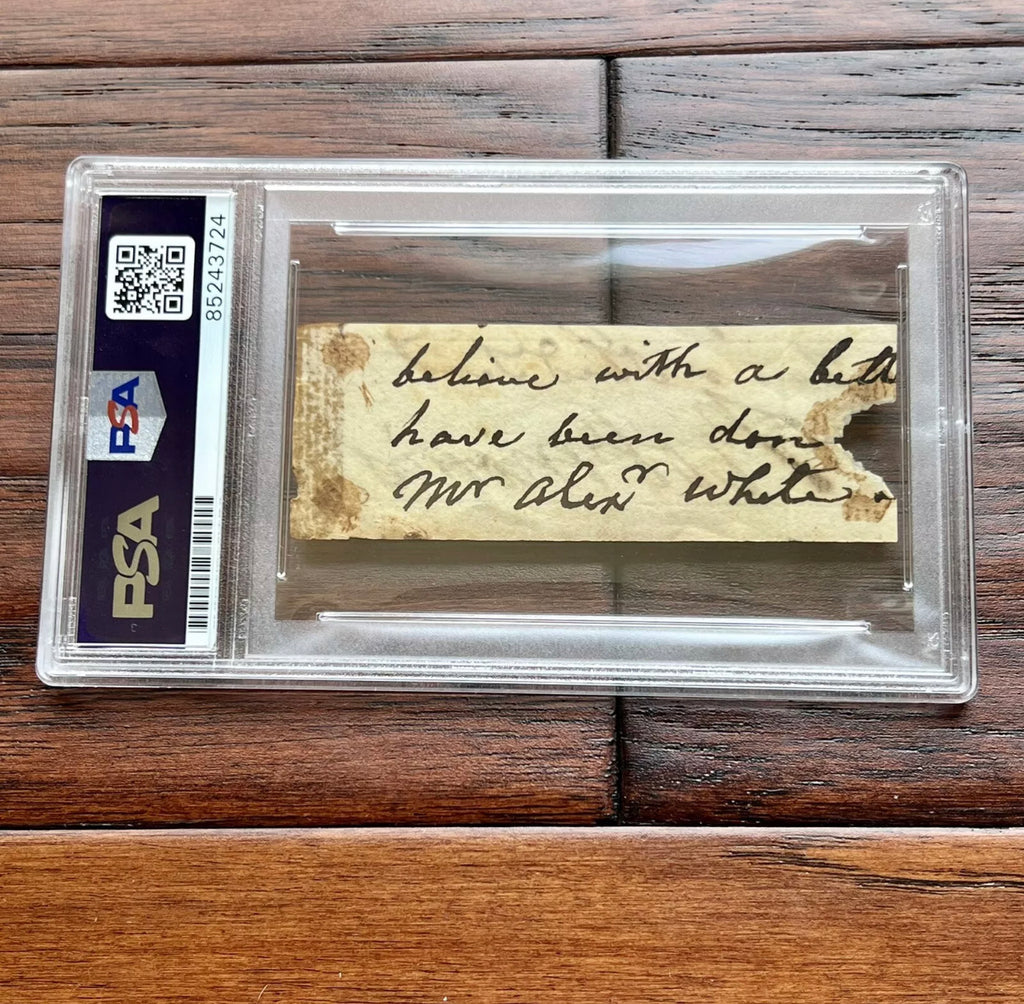 85243724
PSA
PSA
believe with a bett
have been don
Mr Alexr White